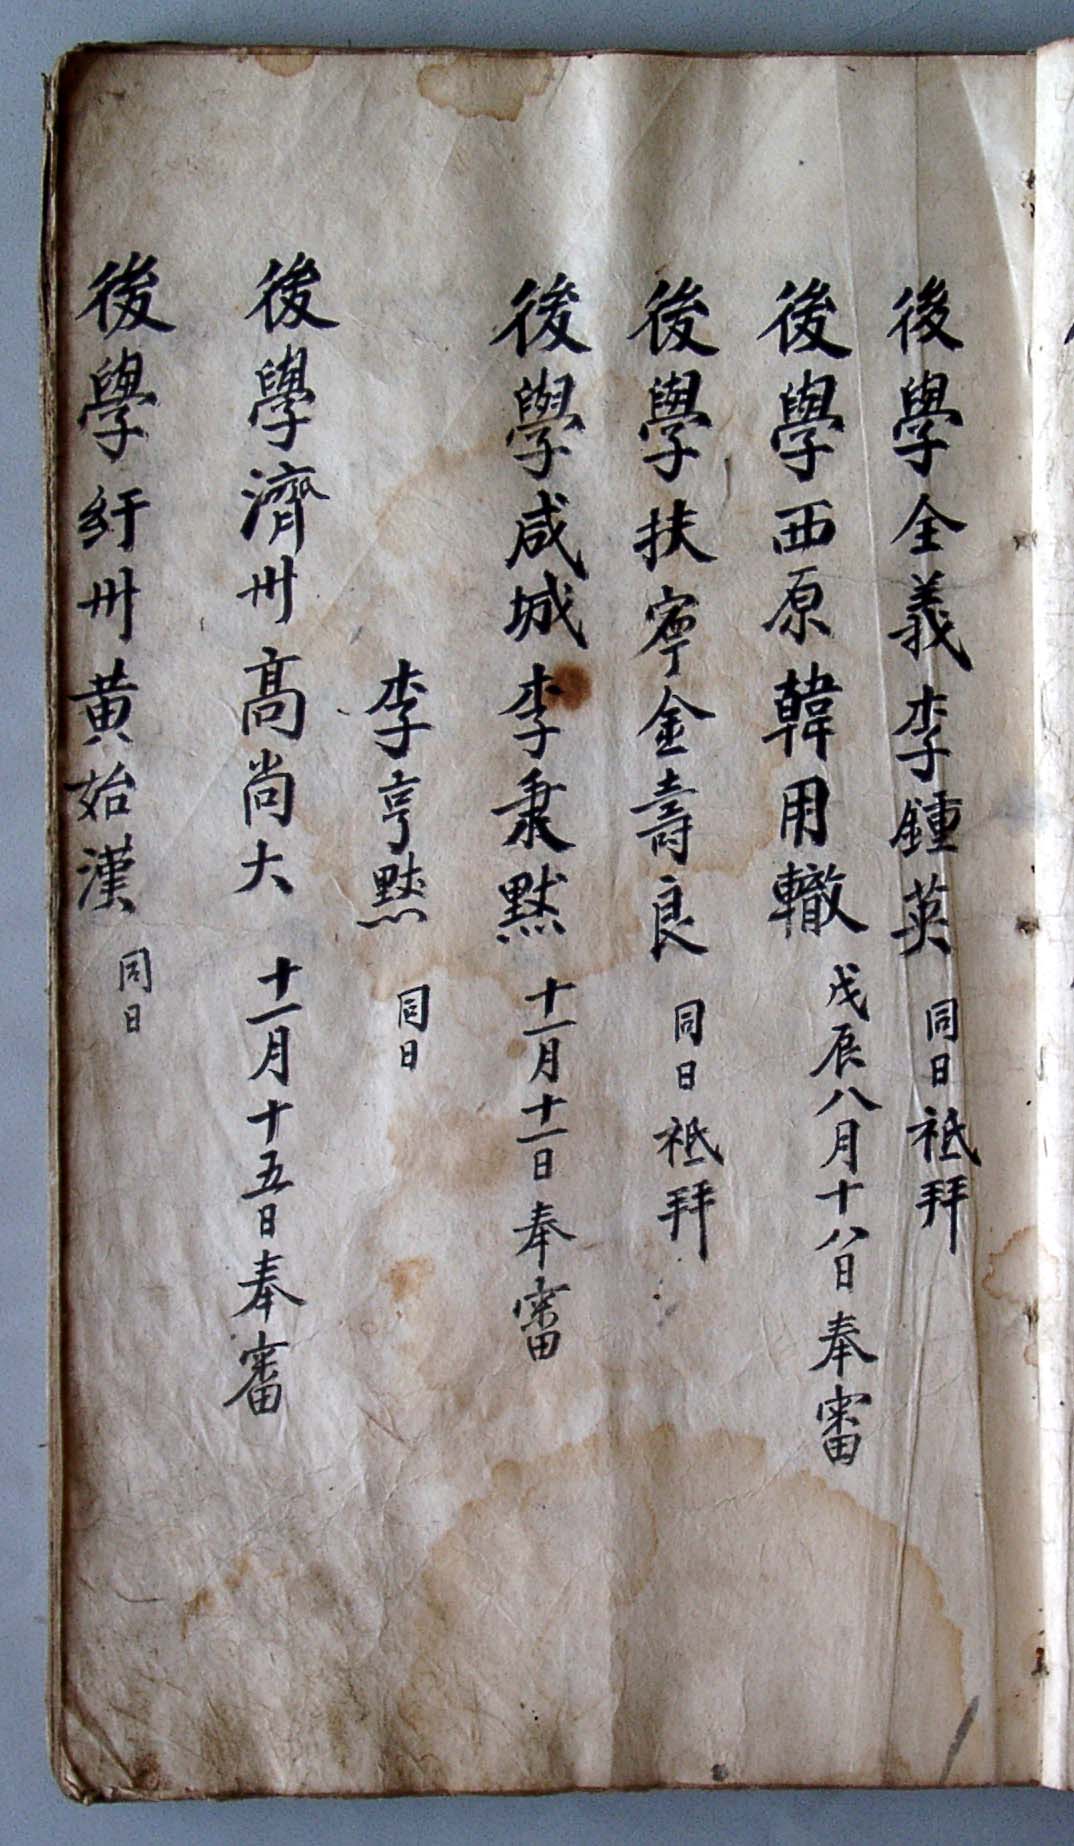 後學全義李鍾英 同日祗拜
後學西原韓用轍 戊辰八月十八日奉審
後學扶寧金壽良 同日祗拜
後學咸城李秉黙 十一月十一日奉審
李亨黙 同日
後學濟州高尙大 十一月十五日奉審
後學紆州黃始漢 同日